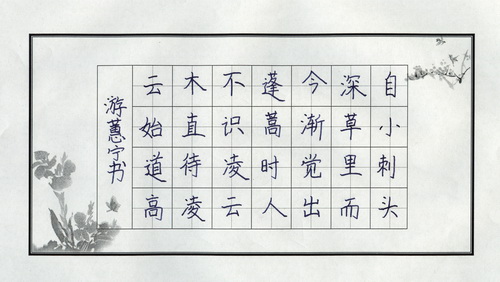 自小刺头
深草里而
今渐觉出
蓬蒿时人
不识凌云
木直待凌
云始道高
游蕙宁书